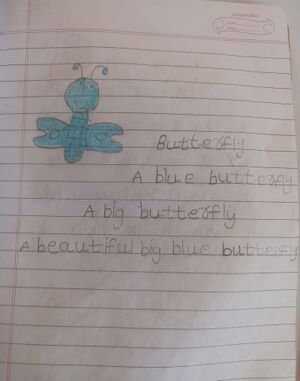 classmate
Date
Page
Butterfly
A blue butterfly
A big butterfly
A beautiful big blue butterfly